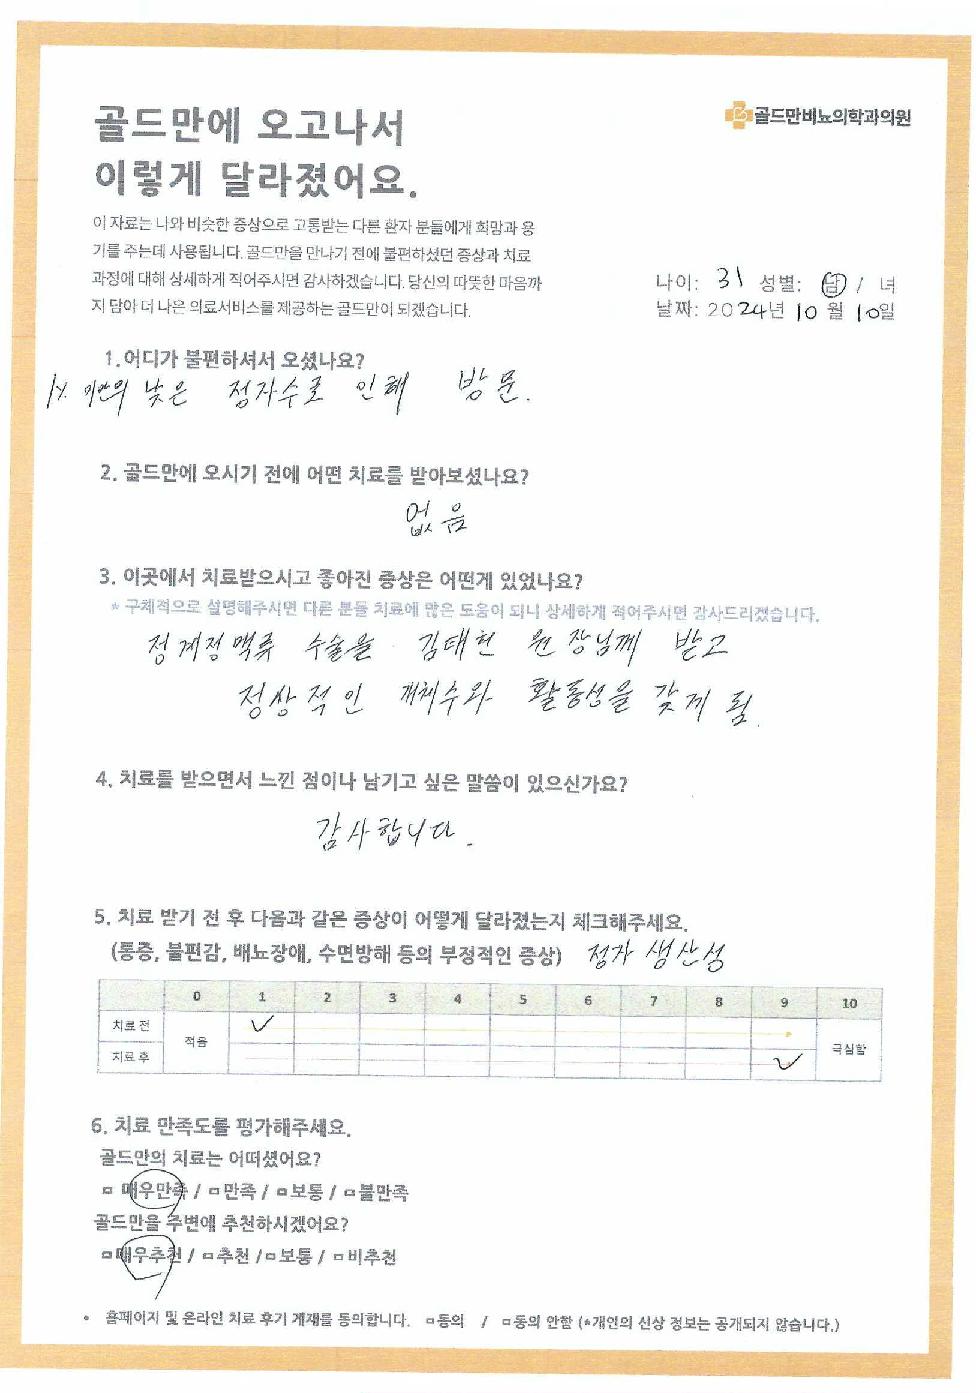 골드만에 오고나서
이렇게 달라졌어요.
골드만비뇨의학과의원
이 자료는 나와 비슷한 증상으로 고통받는 다른 환자 분들에게 희망과 용
기를 주는데 사용됩니다. 골드만을 만나기 전에 불편하셨던 증상과 치료
과정에 대해 상세하게 적어주시면 감사하겠습니다. 당신의 따뜻한 마음까
지 담아 더 나은 의료서비스를 제공하는 골드만이 되겠습니다.
나이: 31 성별: 남 / 녀
날짜: 2024년 10월 10일
1.어디가 불편하셔서 오셨나요?
1% 미만의 낮은 정자수로 인해 방문.
2. 골드만에 오시기 전에 어떤 치료를 받아보셨나요?
없음
3. 이곳에서 치료받으시고 좋아진 증상은 어떤게 있었나요?
* 구체적으로 설명해주시면 다른 분들 치료에 많은 도움이 되니 상세하게 적어주시면 감사드리겠습니다.
정계정맥류 수술을 김태헌 원장님께 받고
정상적인 개체수와 활동성을 갖게 됨.
4. 치료를 받으면서 느낀 점이나 남기고 싶은 말씀이 있으신가요?
감사합니다.
5. 치료 받기 전 후 다음과 같은 증상이 어떻게 달라졌는지 체크해주세요.
(통증, 불편감, 배뇨장애, 수면방해 등의 부정적인 증상) 정자 생산성
0 1 2 3 4 5 6 7 8 9 10
치료 전 적음 ✓ 극심함
치료 후 ✓
6. 치료 만족도를 평가해주세요.
골드만의 치료는 어떠셨어요?
□ 매우만족 / □ 만족 / □ 보통 / □ 불만족
골드만을 주변에 추천하시겠어요?
□ 매우추천 / □ 추천 / □ 보통 / □ 비추천
* 홈페이지 및 온라인 치료 후기 게재를 동의합니다. □ 동의 / □ 동의 안함 (*개인의 신상 정보는 공개되지 않습니다.)